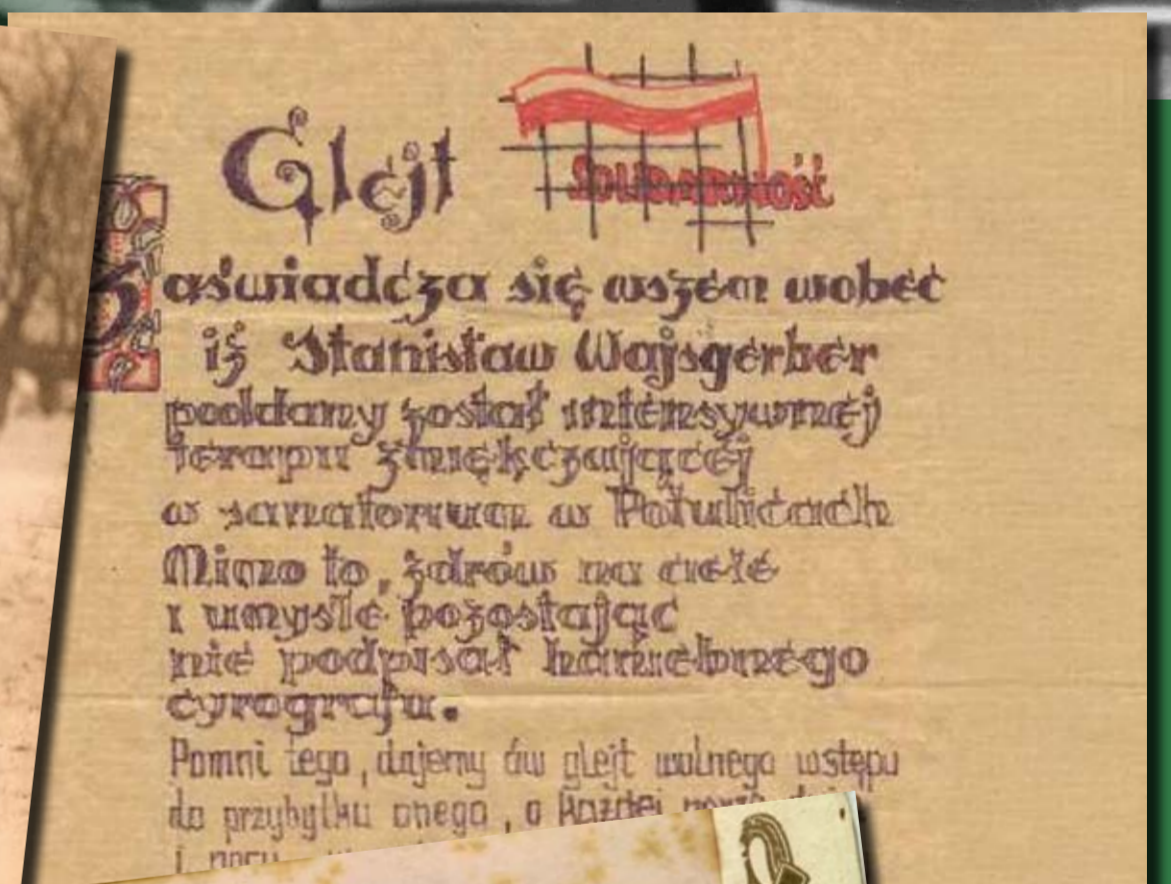 Glejt
SOLIDARNOŚĆ
Zaświadcza się wszem wobec
iż Stanisław Wajsgerber
poddany został intensywnej
terapii zmiękczającej
w sanatorium w Potulicach
Mimo to, zdrów na ciele
i umyśle pozostając
nie podpisał haniebnego
cyrografu.
Pomni tego, dajemy ów glejt wolnego wstępu
do przybytku onego, o każdej porze
i nocy